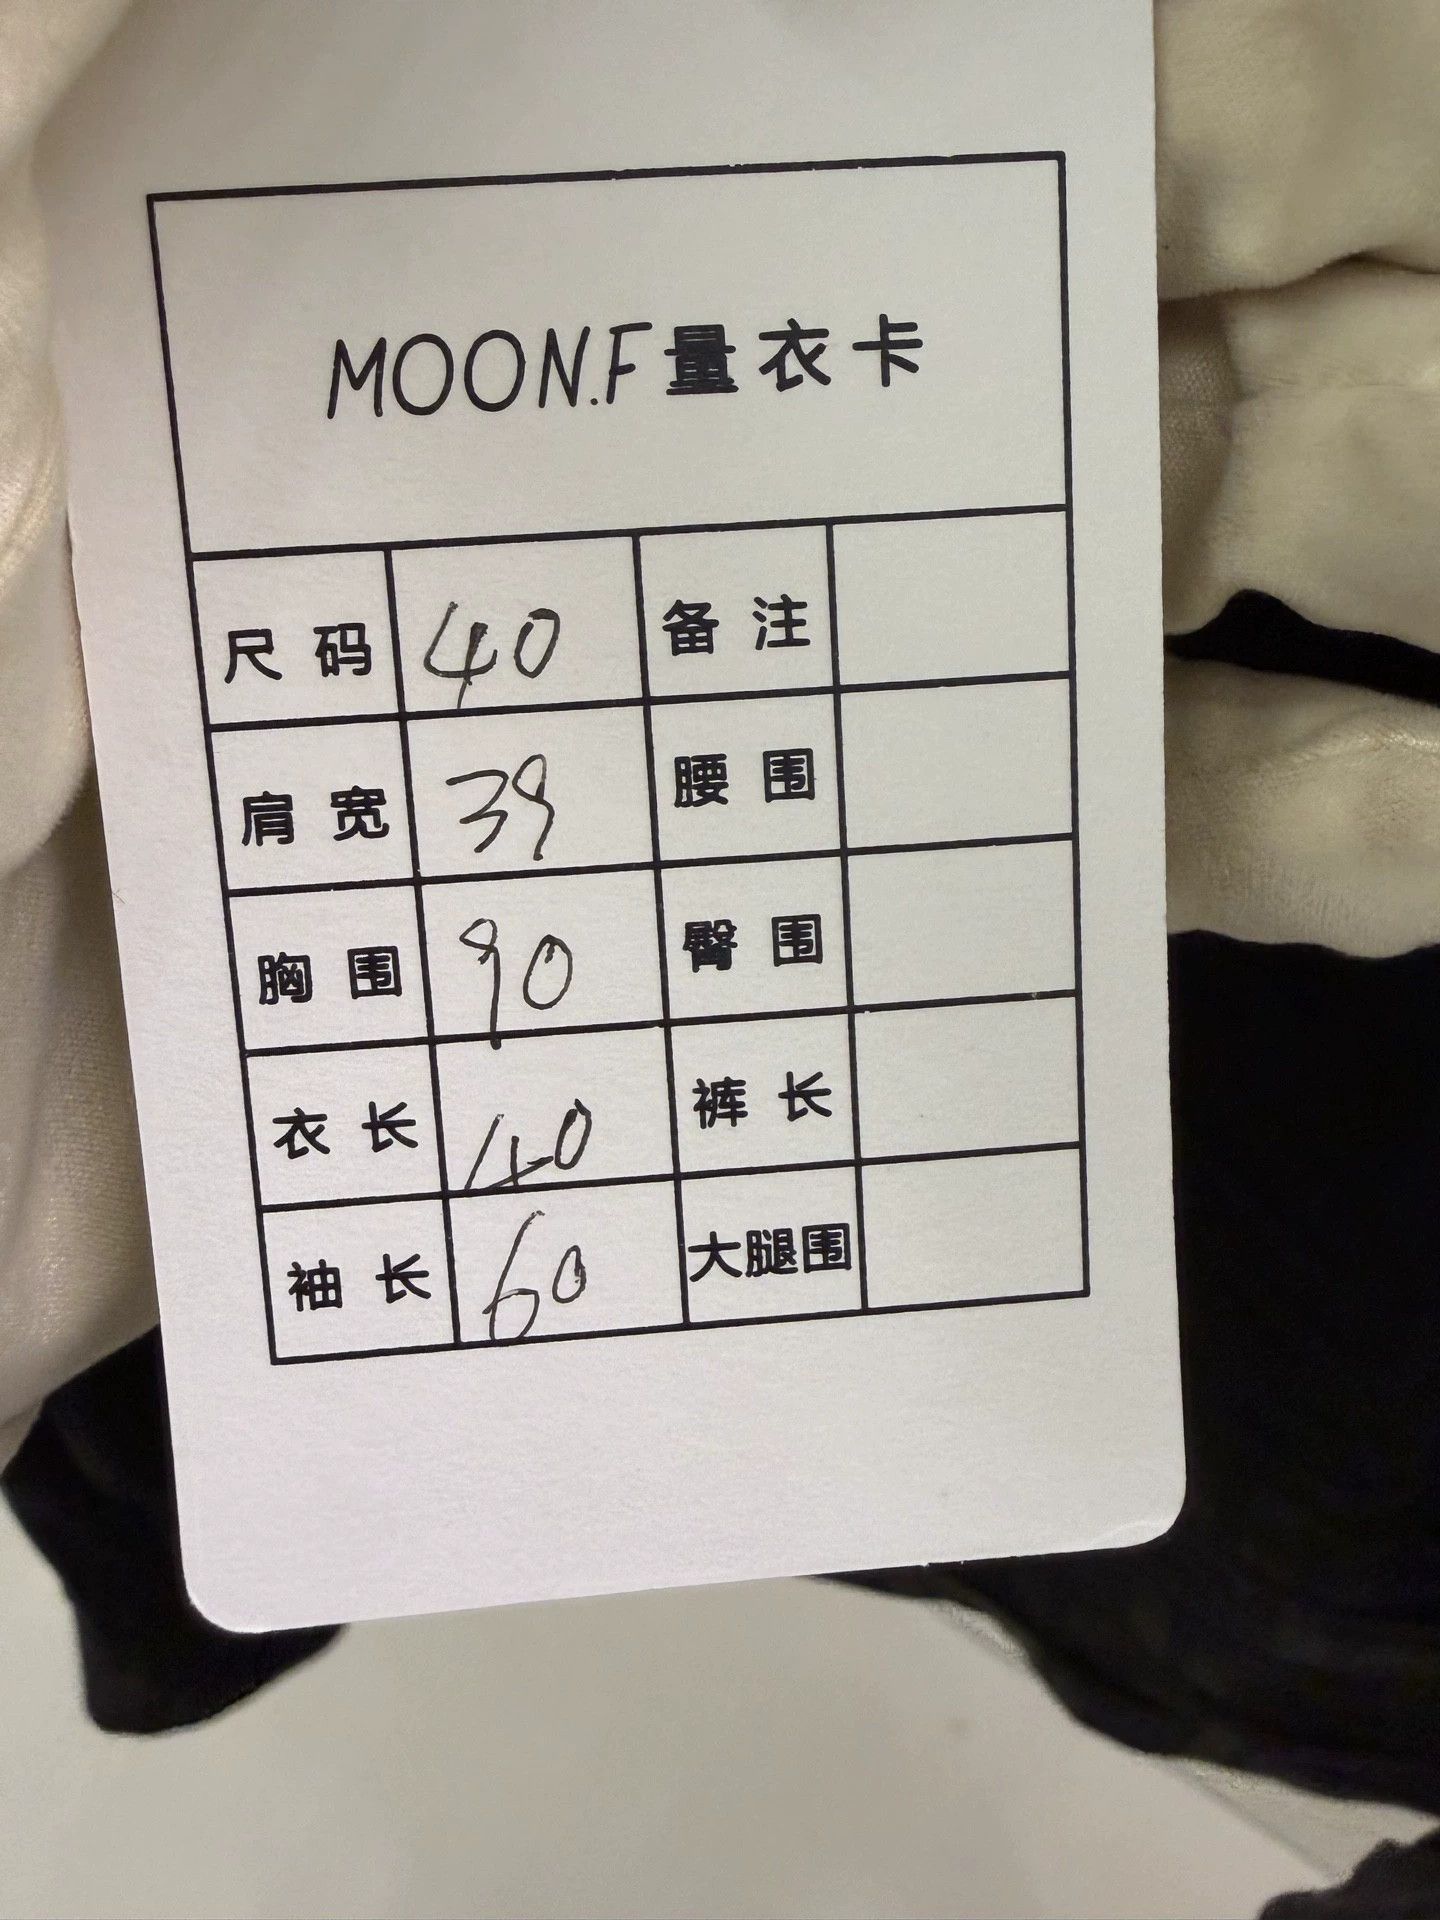 MOON.F量衣卡
尺码 40 备注
肩宽 39 腰围
胸围 90 臀围
衣长 40 裤长
袖长 60 大腿围